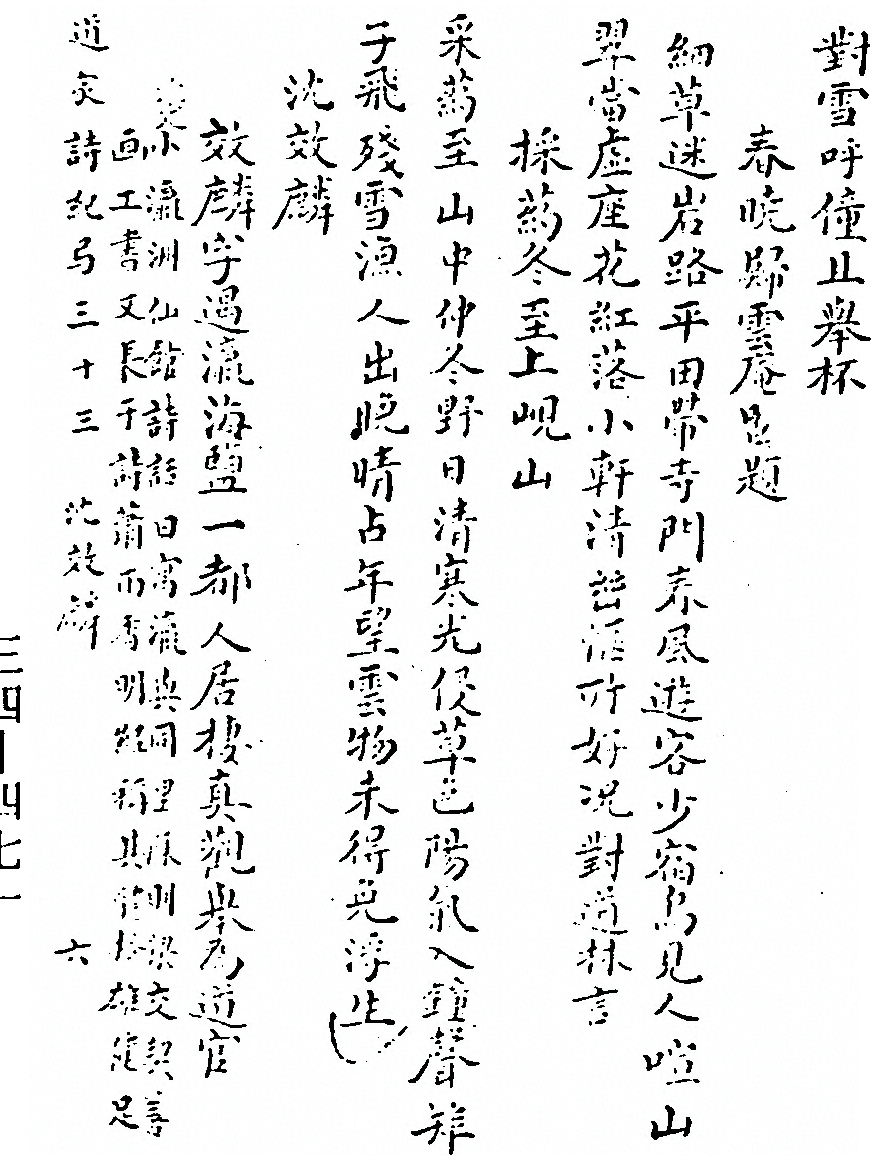 對雪呼僮且舉杯
春曉歸雲庵留題
細草迷岩路平田帶寺門春風遊客少宿鳥見人喧山
翠當虛座花紅落小軒清 所好況對道林言
採蕅冬至上峴山
采蕅至山中仲冬野日清寒光侵草色陽氣入鐘聲雉
子飛殘雪漁人出晚晴占年望雲物未得免浮生
沈效麟
效麟字遇瀛海鹽一都人居棲真觀舉為道官
小瀛洲仙館詩話曰寓瀛與同里 明梁交契善
画工書又長于詩蕭雨香明 稱其 雄健足
道家詩紀弓三十三 沈效麟 六
三四—四七一